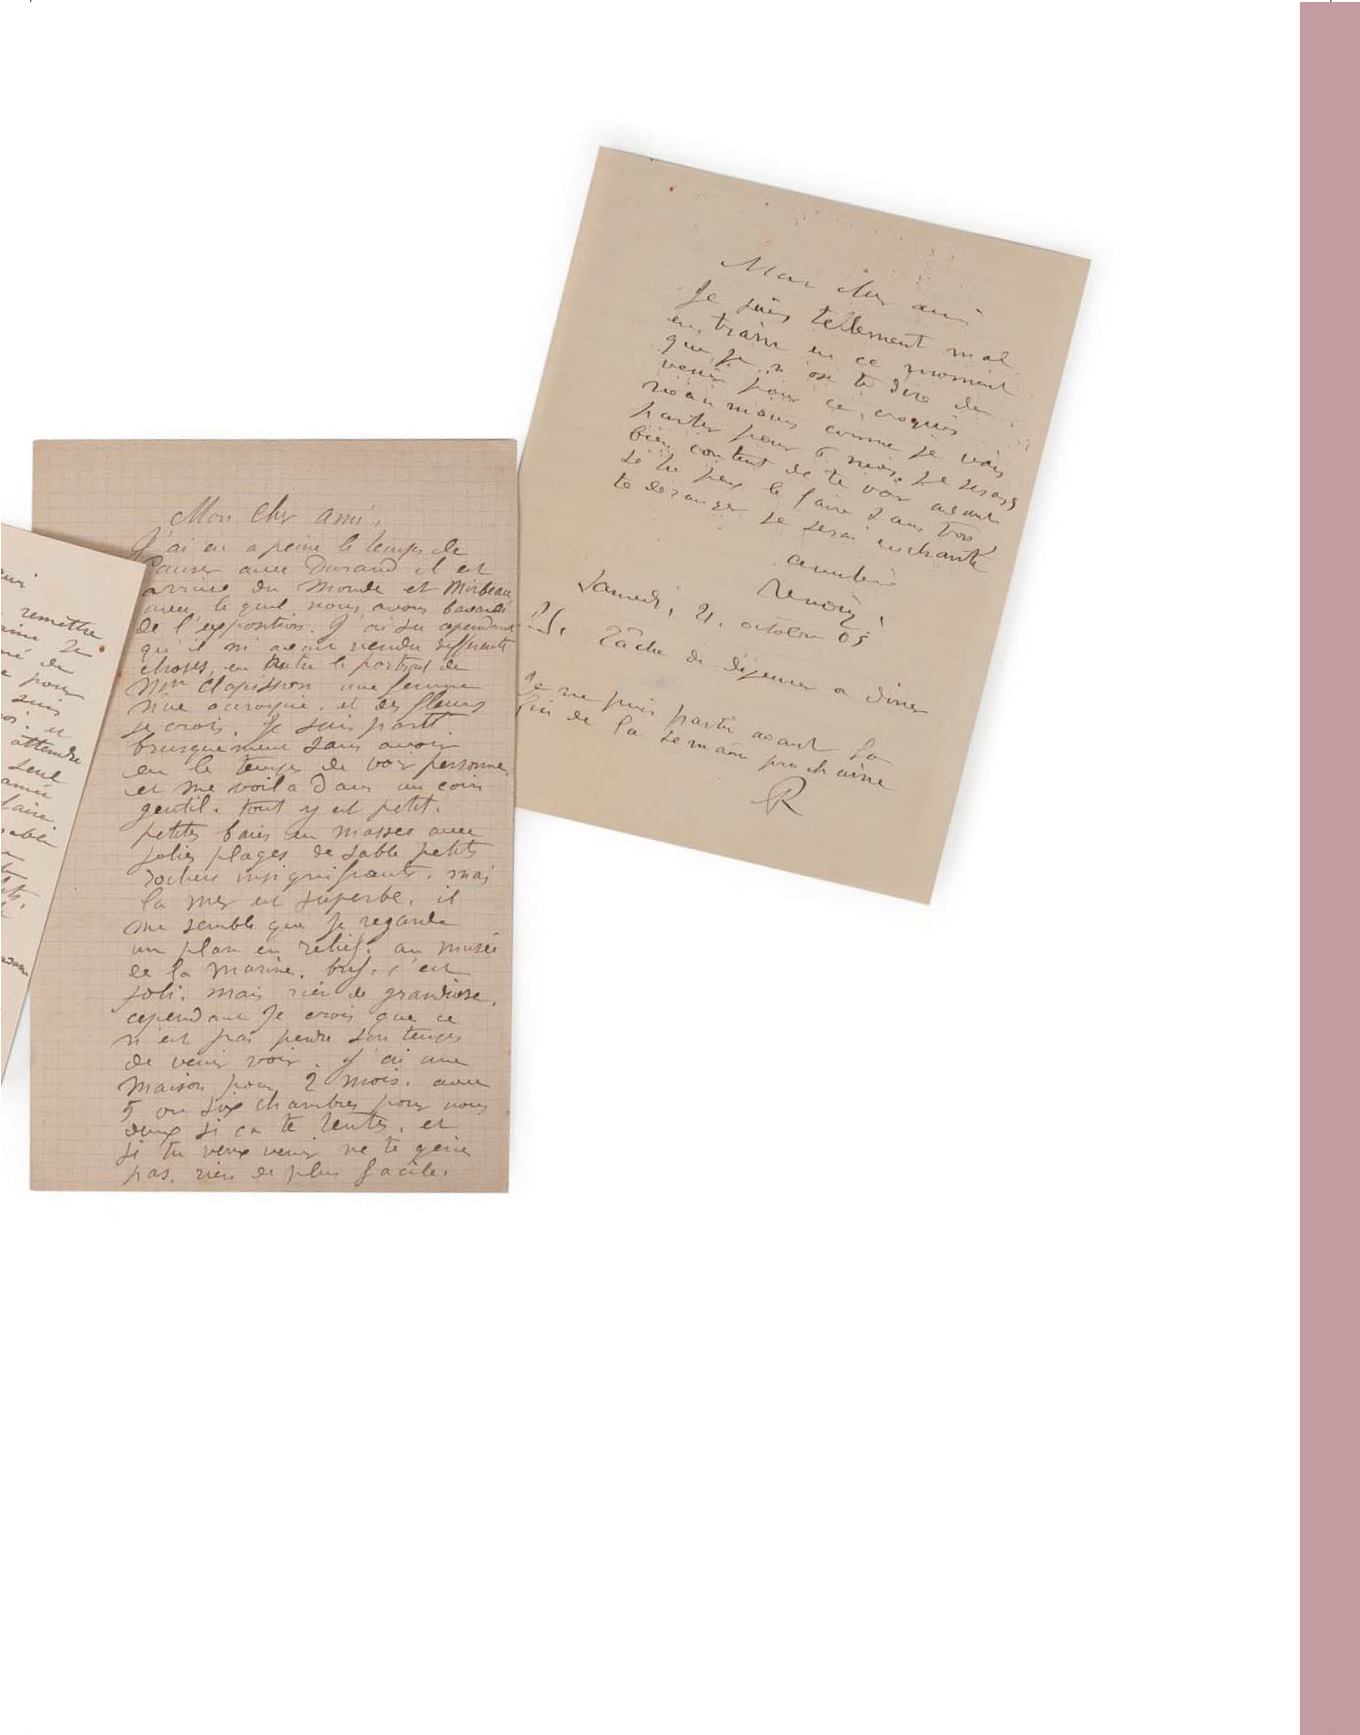 remettre
de
pour
suis
et
attendre
seul
faire.
Mon cher ami,
J'ai eu a peine le temps de
causer avec Durand il est
arrivé du monde et Mirbeau
avec lequel nous avons bavardé
de l'exposition. J'ai su cependant
qu'il m'avait vendu differents
choses, en outre le portrait de
Mme Clapisson une femme
nue accroupie. et des fleurs
je crois. Je suis parti
brusquement sans avoir
eu le temps de voir personne
et me voila dans un coin
gentil. tout y est petit.
petites baies en masses avec
jolies plages de sable petits
rochers insignifiants. mais
la mer est superbe. il
me semble que je regarde
un plan en relief. au musée
de la marine. bref. c'est
joli. mais rien de grandiose.
cependant je crois que ce
n'est pas perdre son temps
de venir voir. J'ai une
maison pour 2 mois. avec
5 ou six chambres pour nous
deux si ça te tente. et
si tu veux venir ne te gene
pas. rien de plus facile.
Mon cher ami
Je suis tellement mal
en train en ce moment
que je n'ose te dire de
venir pour ce croquis
néanmoins comme je vais
partir pour 6 mois. je serais
bien content de te voir avant
si tu peux le faire sans trop
te déranger je serai enchanté
amitié
Renoir
Samedi, 21. octobre 05
PS. Tâche de déjeuner ou diner
Je ne puis partir avant la
fin de la semaine prochaine
R